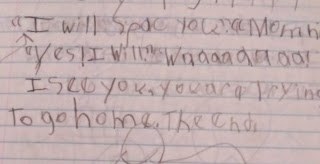 "I will spac you."a Momm
"Yes! I will" Waaaaaaaa!
I see you, you are Tryin
To go home. The end.